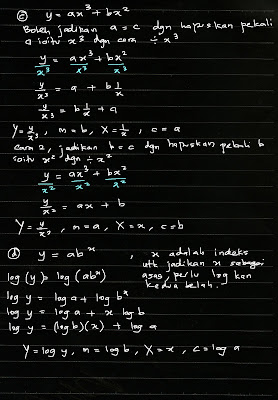 ⓒ y = ax³ + bx²
Boleh jadikan a = c dgn hapuskan pekali
a iaitu x³ dgn cara ÷ x³
y/x³ = ax³/x³ + bx²/x³
y/x³ = a + b 1/x
y/x³ = b 1/x + a
Y = y/x³, m = b, X = 1/x, c = a
cara 2, jadikan b = c dgn hapuskan pekali b
iaitu x² dgn ÷ x²
y/x² = ax³/x² + bx²/x²
y/x² = ax + b
Y = y/x², m = a, X = x, c = b
ⓓ y = abˣ, x adalah indeks
utk jadikan x sebagai
asas, perlu log kan
kedua belah.
log(y) = log(abˣ)
log y = log a + log bˣ
log y = log a + x log b
log y = (log b)(x) + log a
Y = log y, m = log b, X = x, c = log a